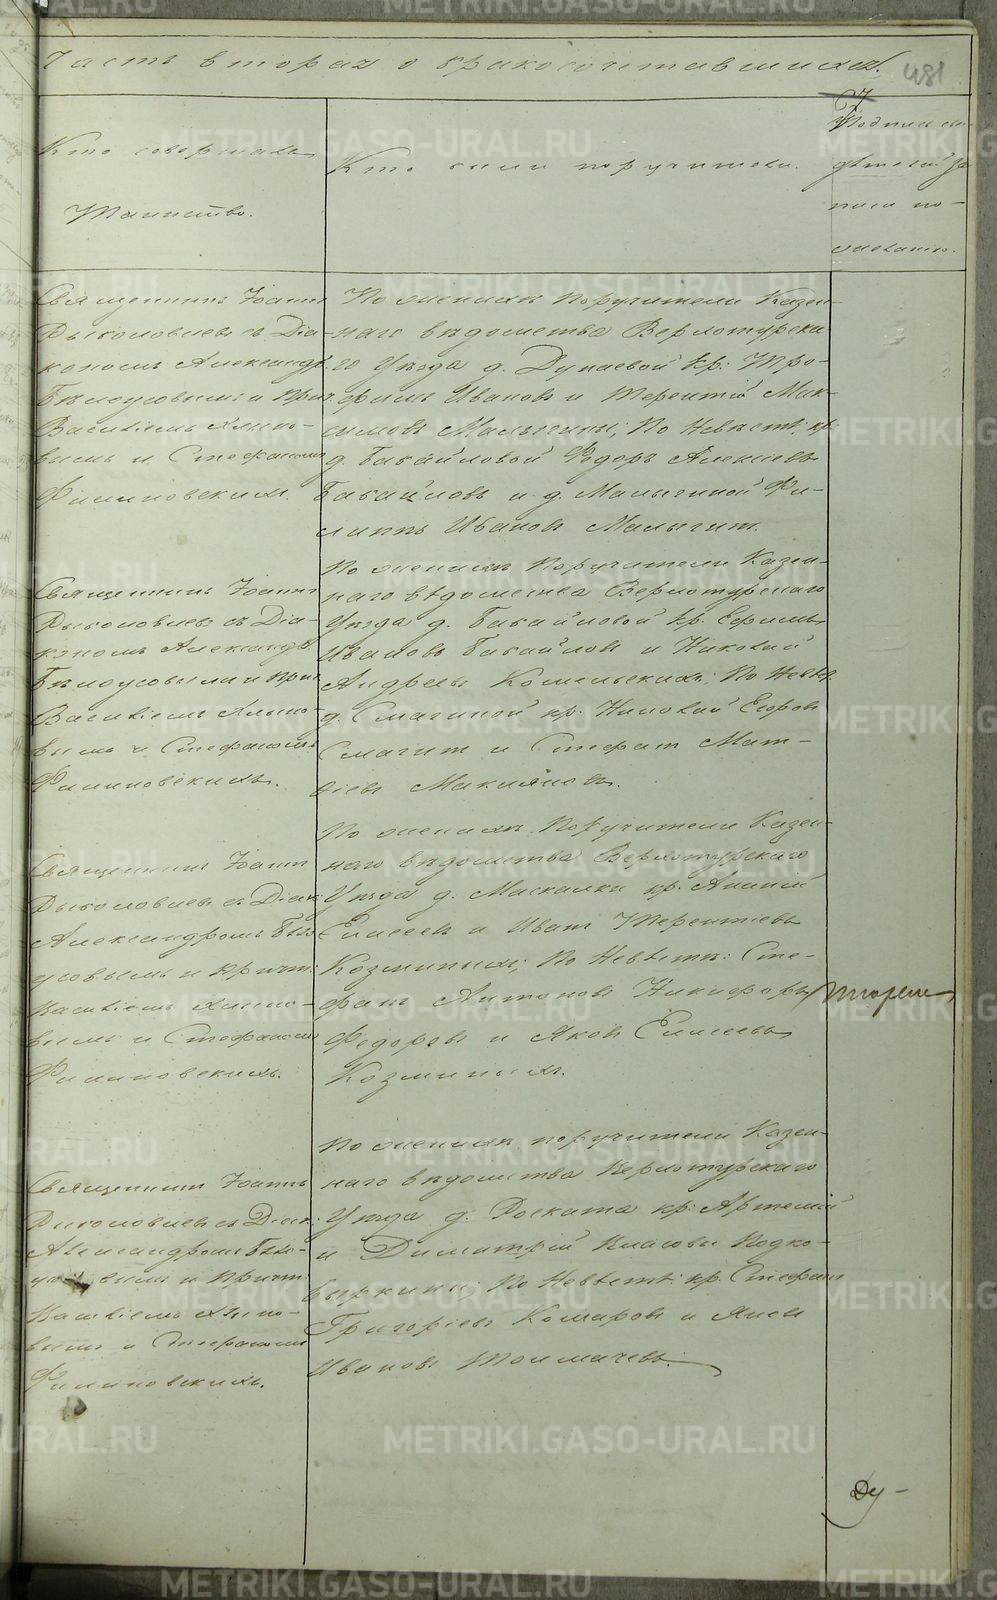 Часть вторая о бракосочетавшихся.
481
Кто совершалъ
Таинство.
Кто были поручители.
Подпись сви-
дѣтелей за-
писи по
желанію.
Священникъ Іоаннъ
Дыколовлевъ съ Діа-
кономъ Александр.
Бѣлоусовымъ и прич.
Василіемъ Хлыно-
вымъ и Стефаномъ
Филиповскимъ.
По женихѣ поручители Казен-
наго вѣдомства Верхотурска-
го Уѣзда д. Дунаевой кр: Тро-
фимъ Ивановъ и Терентій Мак-
симовъ Малыгины; По Невѣстѣ: кр:
д. Бабайловой Ѳедоръ Алексѣевъ
Бабайловъ и д. Малыгиной Фи-
липпъ Ивановъ Малыгинъ.
Священникъ Іоаннъ
Дыколовлевъ съ Діа-
кономъ Александр.
Бѣлоусовымъ и прич
Василіемъ Хлыно-
вымъ и Стефаномъ
Филиповскимъ.
По женихѣ поручители Казен-
наго вѣдомства Верхотурскаго
Уѣзда д. Бабайловой кр. Ефимъ
Ивановъ Бабайловъ и Николай
Андреевъ Комельскихъ, По Невѣс
д. Смагиной кр. Николай Егоровъ
Смагинъ и Стефанъ Мат-
ѳіевъ
Священникъ Іоаннъ
Дыколовлевъ съ Діак
Александромъ Бѣло
усовымъ и причт:
Василіемъ Хлыно-
вымъ и Стефаномъ
Филиповскимъ.
По женихѣ поручители Казен-
наго вѣдомства Верхотурскаго
Уѣзда д. Маскалки кр. Ананій
Елисеевъ и Иванъ Терентіевъ
Козмины; По Невѣстѣ: Сте-
фанъ Антоновъ Никифоръ
Ѳедоровъ и Яковъ Елисеевъ
Козминыхъ.
Священникъ Іоаннъ
Дыколовлевъ съ Діак.
Александромъ Бѣло-
усовымъ и причт:
Василіемъ Хлыно-
вымъ и Стефаномъ
Филиповскимъ.
По женихѣ поручители Казен-
наго вѣдомства Верхотурскаго
Уѣзда д. Роскаты кр: Артемій
и Димитрій Власовы Подко-
выркины; По Невѣстѣ: кр. Стефанъ
Григоріевъ Комаровъ и Яковъ
Ивановъ Толмачевъ.
Ду-
METRIKI.GASO-URAL.RU